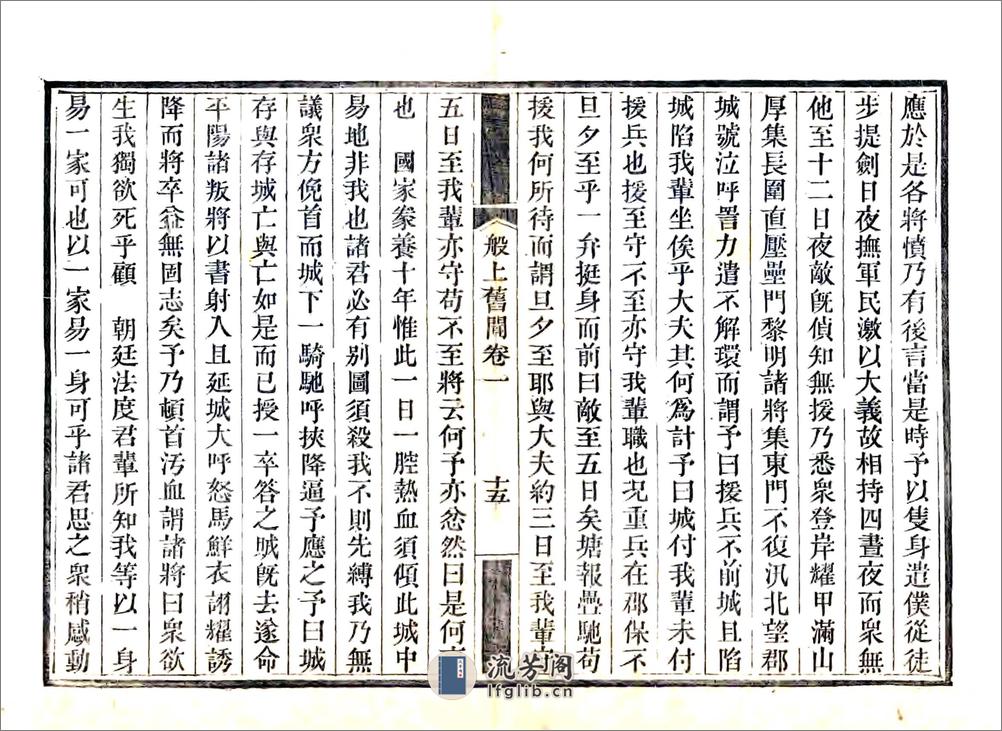 應於是各將憤乃有後言當是時予以隻身遣僕從徒
步提劍日夜撫軍民激以大義故相持四晝夜而衆無
他至十二日夜敵旣偵知無援乃悉衆登岸耀甲滿山
厚集長圍直壓壘門黎明諸將集東門不復汛北望郡
城號泣呼詈力遣不解環而謂予曰援兵不前城且陷
城陷我輩坐俟乎大夫其何爲計予曰城付我輩未付
援兵也援至守不至亦守我輩職也况重兵在郡保不
旦夕至乎一弁挺身而前曰敵至五日矣塘報疊馳苟
援我何所待而謂旦夕至耶與大夫約三日至我輩守
般上舊聞卷一
十五
五日至我輩亦守苟不至將云何予亦忿然曰是何
也 國家豢養十年惟此一日一腔熱血須傾此城中
易地非我也諸君必有别圖須殺我不則先縛我乃無
議衆方俛首而城下一騎馳呼挾降逼予應之予曰城
存與存城亡與亡如是而已授一卒答之賊旣去遂命
平陽諸叛將以書射入且延城大呼怒馬鮮衣詡耀誘
降而將卒益無固志矣予乃頓首汚血謂諸將曰衆欲
生我獨欲死乎顧 朝廷法度君輩所知我等以一身
易一家可也以一家易一身可乎諸君思之衆稍感動
流芳閣
lfglib.cn